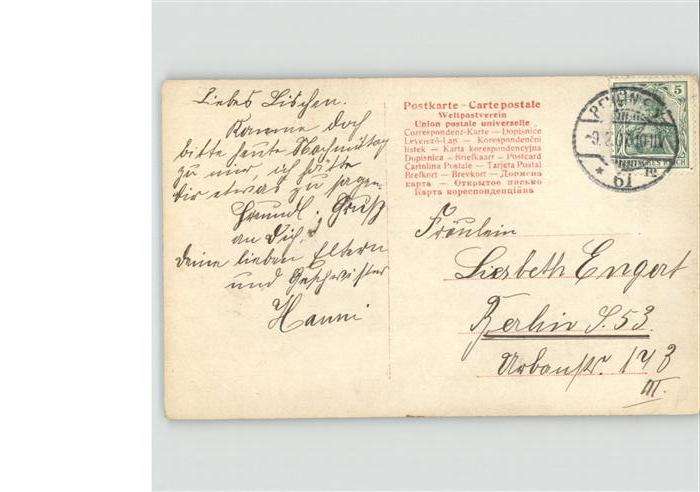 Liebes Lischen.
Komme doch
bitte heute Nachmittag
zu mir ich hätte
dir etwas zu sagen
Freundl. Gruß
an Dich
deine lieben Eltern
und Geschwister
Hanni
Postkarte - Carte postale
Weltpostverein
Union postale universelle
Correspondenz-Karte — Dopisnice
Levelező-Lap — Korespondenční
lístek — Karta korespondencyjna
Dopisnica — Briefkaart — Postcard
Cartolina Postale — Tarjeta Postal
Brefkort — Brevkort — Дописна
карта — Открытое письмо
Карта кореспонденциiна
5
BERLIN S.W.
61
Fräulein
Liesbeth Engert
Berlin S. 53.
Urbanstr. 173
III.